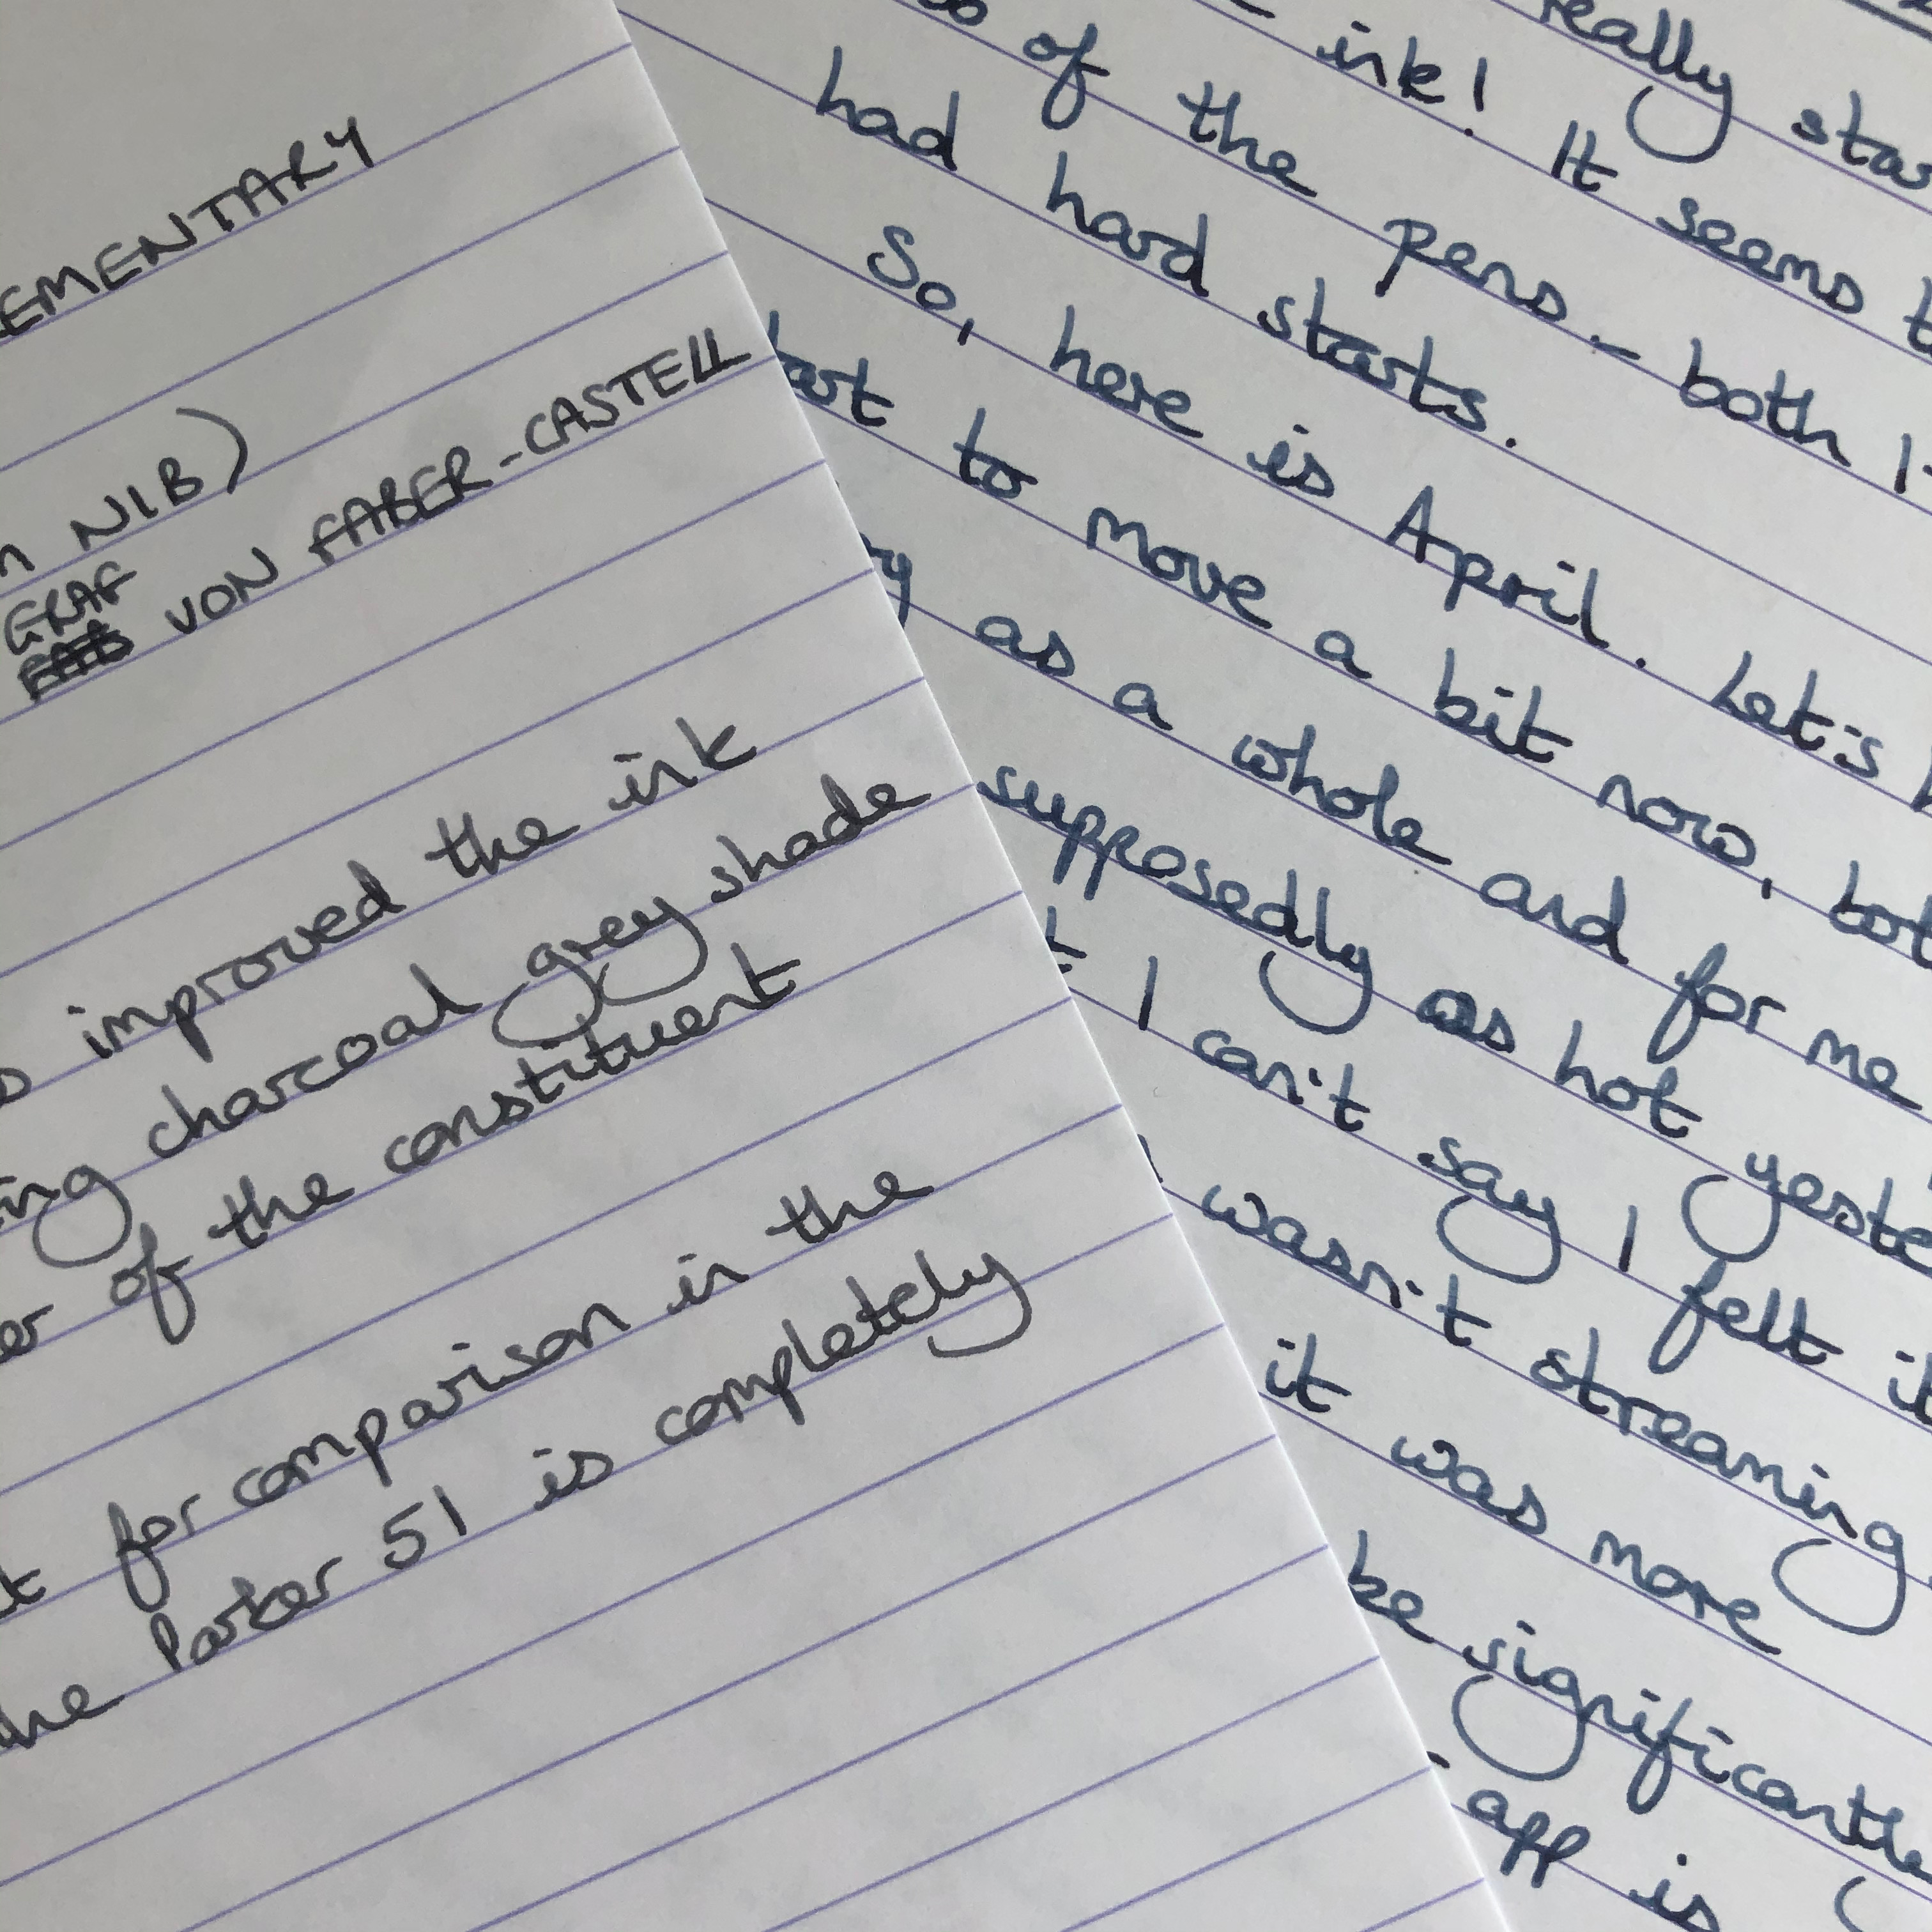 EMENTARY
NIB)
GRAF
VON FABER-CASTELL
improved the ink
charcoal grey shade
of the constituent
for comparison in the
Parker 51 is completely
really
ink! It seems
of the pens - both
had hard starts.
So, here is April. Let's
to move a bit now, but
as a whole and for me
supposedly as hot
I can't say I felt
wasn't streaming
it was more
be significantly
app is